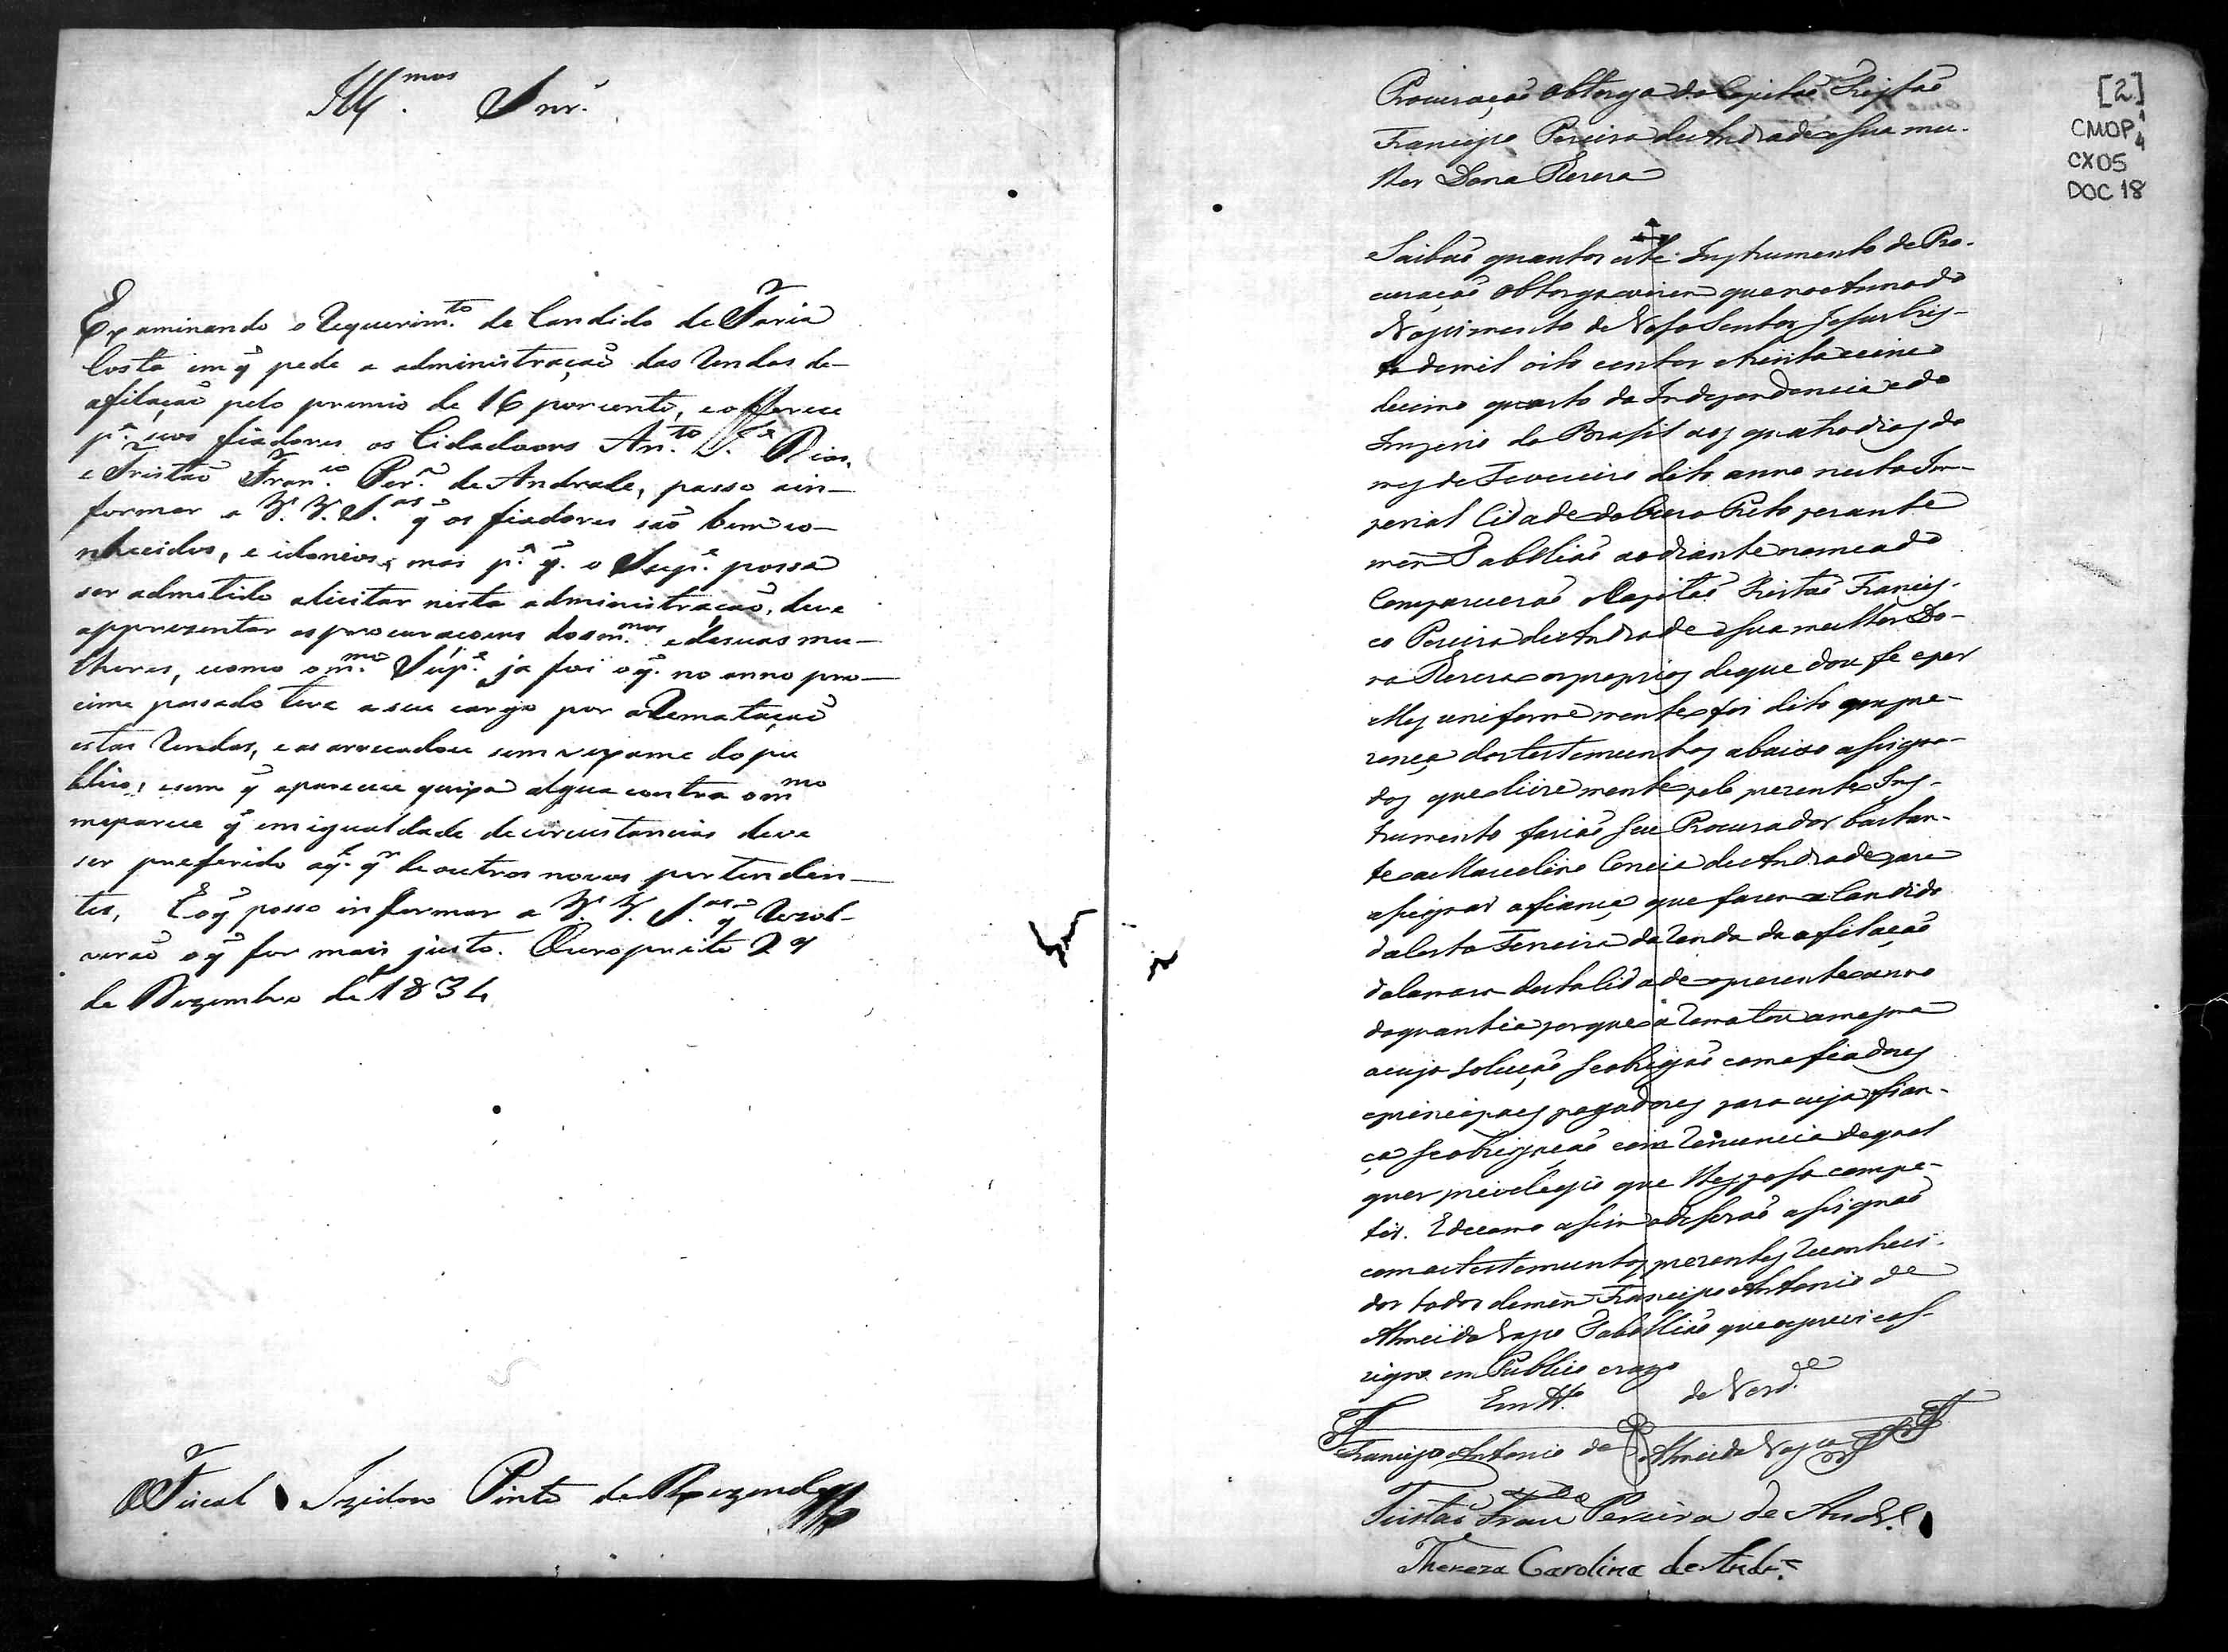 Ill.mos Snr.
Examinando o Requerim.to de Candido de Faria
Costa em q̃ pede a administraçaõ das Rendas de
afilaçaõ pelo premio de 16 porcento, e offerece
p.a seus fiadores os Cidadaons An.to J.e Dias,
e Tristaõ Fran.co Per.a de Andrade, passo ain-
formar a V. V. S.as q̃ os fiadores saõ bem co-
nhecidos, e idoneios, mas p.a q̃. o Sup.e possa
ser admetido alicitar nesta administraçaõ, deve
apprezentar as procuraçoens dos m.mos e de suas mu-
lheres, e como o m.mo Sup.e ja foi o q̃. no anno pro-
cimo passado teve a seu cargo por aRemataçaõ
estas Rendas, e as arrecadou sem vexame do pu
blico, e sem q̃ aparecece queixa algua contra o m.mo
me parece q̃ em igualdade de circustancias deve
ser preferido aq.l q.r de outros novos pertenden-
tes, E o q̃ posso informar a V. V. S.as q̃ Rezol-
veraõ o q̃ for mais justo. Ouropreito 29
de Dezembro de 1834
O Fiscal Izidoro Pinto de Rezende
[2]
CMOP
CX05
DOC 18
Procuraçaõ Obtorga do Capitaõ Tristaõ
Francisco Pereira de Andrade e sua mu-
lher Dona Tereza
Saibaõ quantos este Instrumento de Pro-
curaçaõ Obtorga virem que no Anno do
Nascimento de Nosso Senhor Jesus Cris-
to de mil oito centos e trinta e cinco
decimo quarto da Independencia e do
Imperio do Brasil aos quatro dias do
mes de Fevereiro dito anno nesta Im-
perial Cidade do Ouro Preto perante
mim Tabelliaõ ao diante nomeado
Compareceraõ o Capitaõ Tristaõ Francis-
co Pereira de Andrade e sua mulher Do-
na Tereza os proprios de que dou fe e por
elles uniforme mente foi dito em pre-
zença das testemunhas abaixo assigna-
dos que livre mente pelo prezente Ins-
trumento fasiaõ seu Procurador bastan-
te a Marcelino Correia de Andrade para
assignar a fiança que fazem a Candido
da Costa Ferreira da Renda da afilaçaõ
da Camara desta Cidade o prezente anno
da quantia porque a Rematou a mesma
a cuja soluçaõ se obrigaõ como fiadores
e principaes pagadores para cuja fian-
ça se obrigaçaõ com Renuncia de qual
quer previlegio que lhes possa compe-
tir. E de como assim o diseraõ assignaõ
com as testemunhas prezentes Reconheci-
dos todos de mim Francisco Antonio de
Almeida Tabelliaõ que o escrevi e as-
signo em Publico e razo
Em tt.o de Verd.e
Francisco Antonio de Almeida
Tristaõ Fran.co Pereira de Andr.e
Thereza Carolina de Andr.e